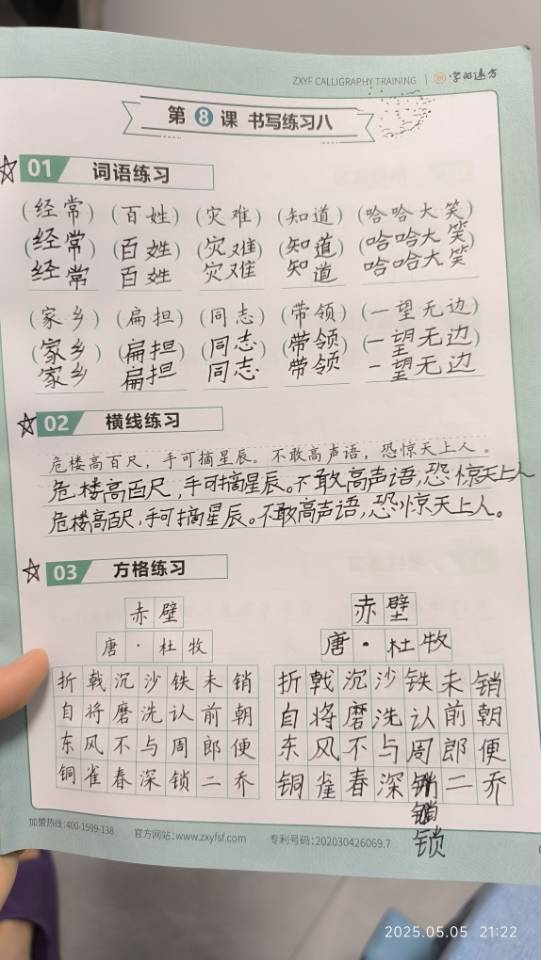 ZXYF CALLIGRAPHY TRAINING 字如远方
第 8 课 书写练习八
01 词语练习
(经常) (百姓) (灾难) (知道) (哈哈大笑)
(经常) (百姓) (灾难) (知道) (哈哈大笑)
经常 百姓 灾难 知道 哈哈大笑
(家乡) (扁担) (同志) (带领) (一望无边)
(家乡) (扁担) (同志) (带领) (一望无边)
家乡 扁担 同志 带领 一望无边
02 横线练习
危楼高百尺，手可摘星辰。不敢高声语，恐惊天上人。
危楼高百尺,手可摘星辰。不敢高声语,恐惊天上人
危楼高百尺,手可摘星辰。不敢高声语,恐惊天上人。
03 方格练习
赤壁 赤壁
唐·杜牧 唐·杜牧
折戟沉沙铁未销 折戟沉沙铁未销
自将磨洗认前朝 自将磨洗认前朝
东风不与周郎便 东风不与周郎便
铜雀春深锁二乔 铜雀春深 二乔
锁
加盟热线:400-1599-138 官方网站:www.zxyfsf.com 专利号码:202030426069.7
2025.05.05 21:22